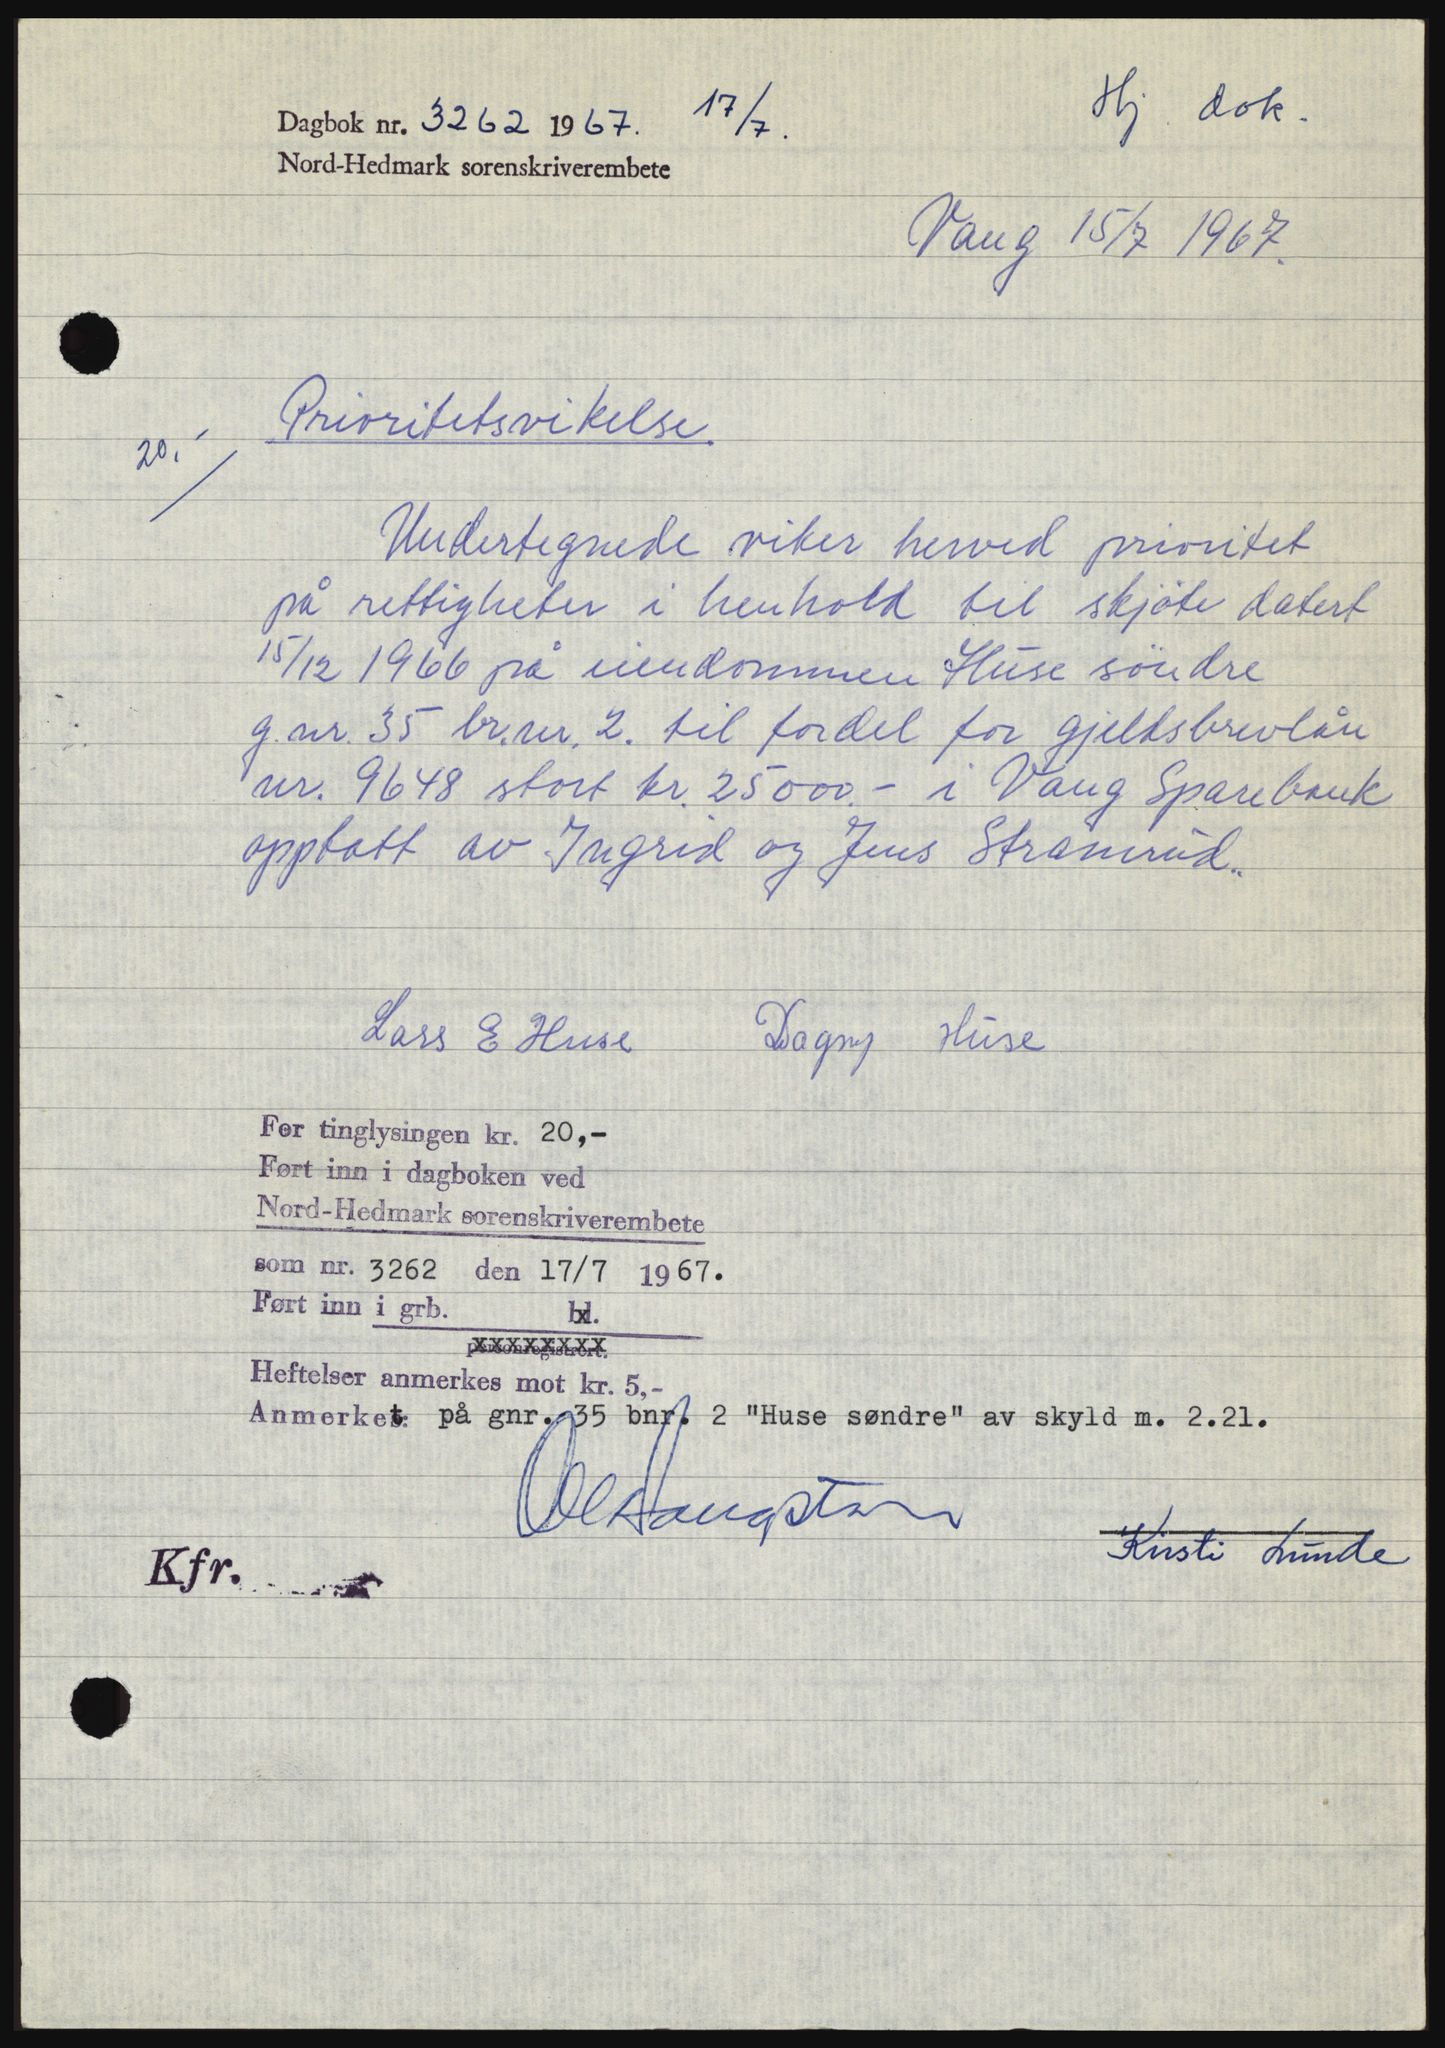 Hj. dok.
Dagbok nr. 3262 1967. 17/7.
Nord-Hedmark sorenskriverembete
Vang 15/7 1967.
20,-
Prioritetsvikelse.
Undertegnede viker herved prioritet
på rettigheter i henhold til skjöte datert
15/12 1966 på eiendommen Huse söndre
g.nr. 35 br.nr. 2. til fordel for gjeldsbrevlån
nr. 9648 stort kr. 25000.- i Vang Sparebank
opptatt av Ingrid og Jens Stramrud.
Lars E Huse Dagny Huse
For tinglysingen kr. 20,-
Ført inn i dagboken ved
Nord-Hedmark sorenskriverembete
som nr. 3262 den 17/7 1967.
Ført inn i grb. bd.
personregistrert.
Heftelser anmerkes mot kr. 5,-
Anmerket: på gnr. 35 bnr. 2 "Huse søndre" av skyld m. 2.21.
Kirsti Lunde
Kfr.